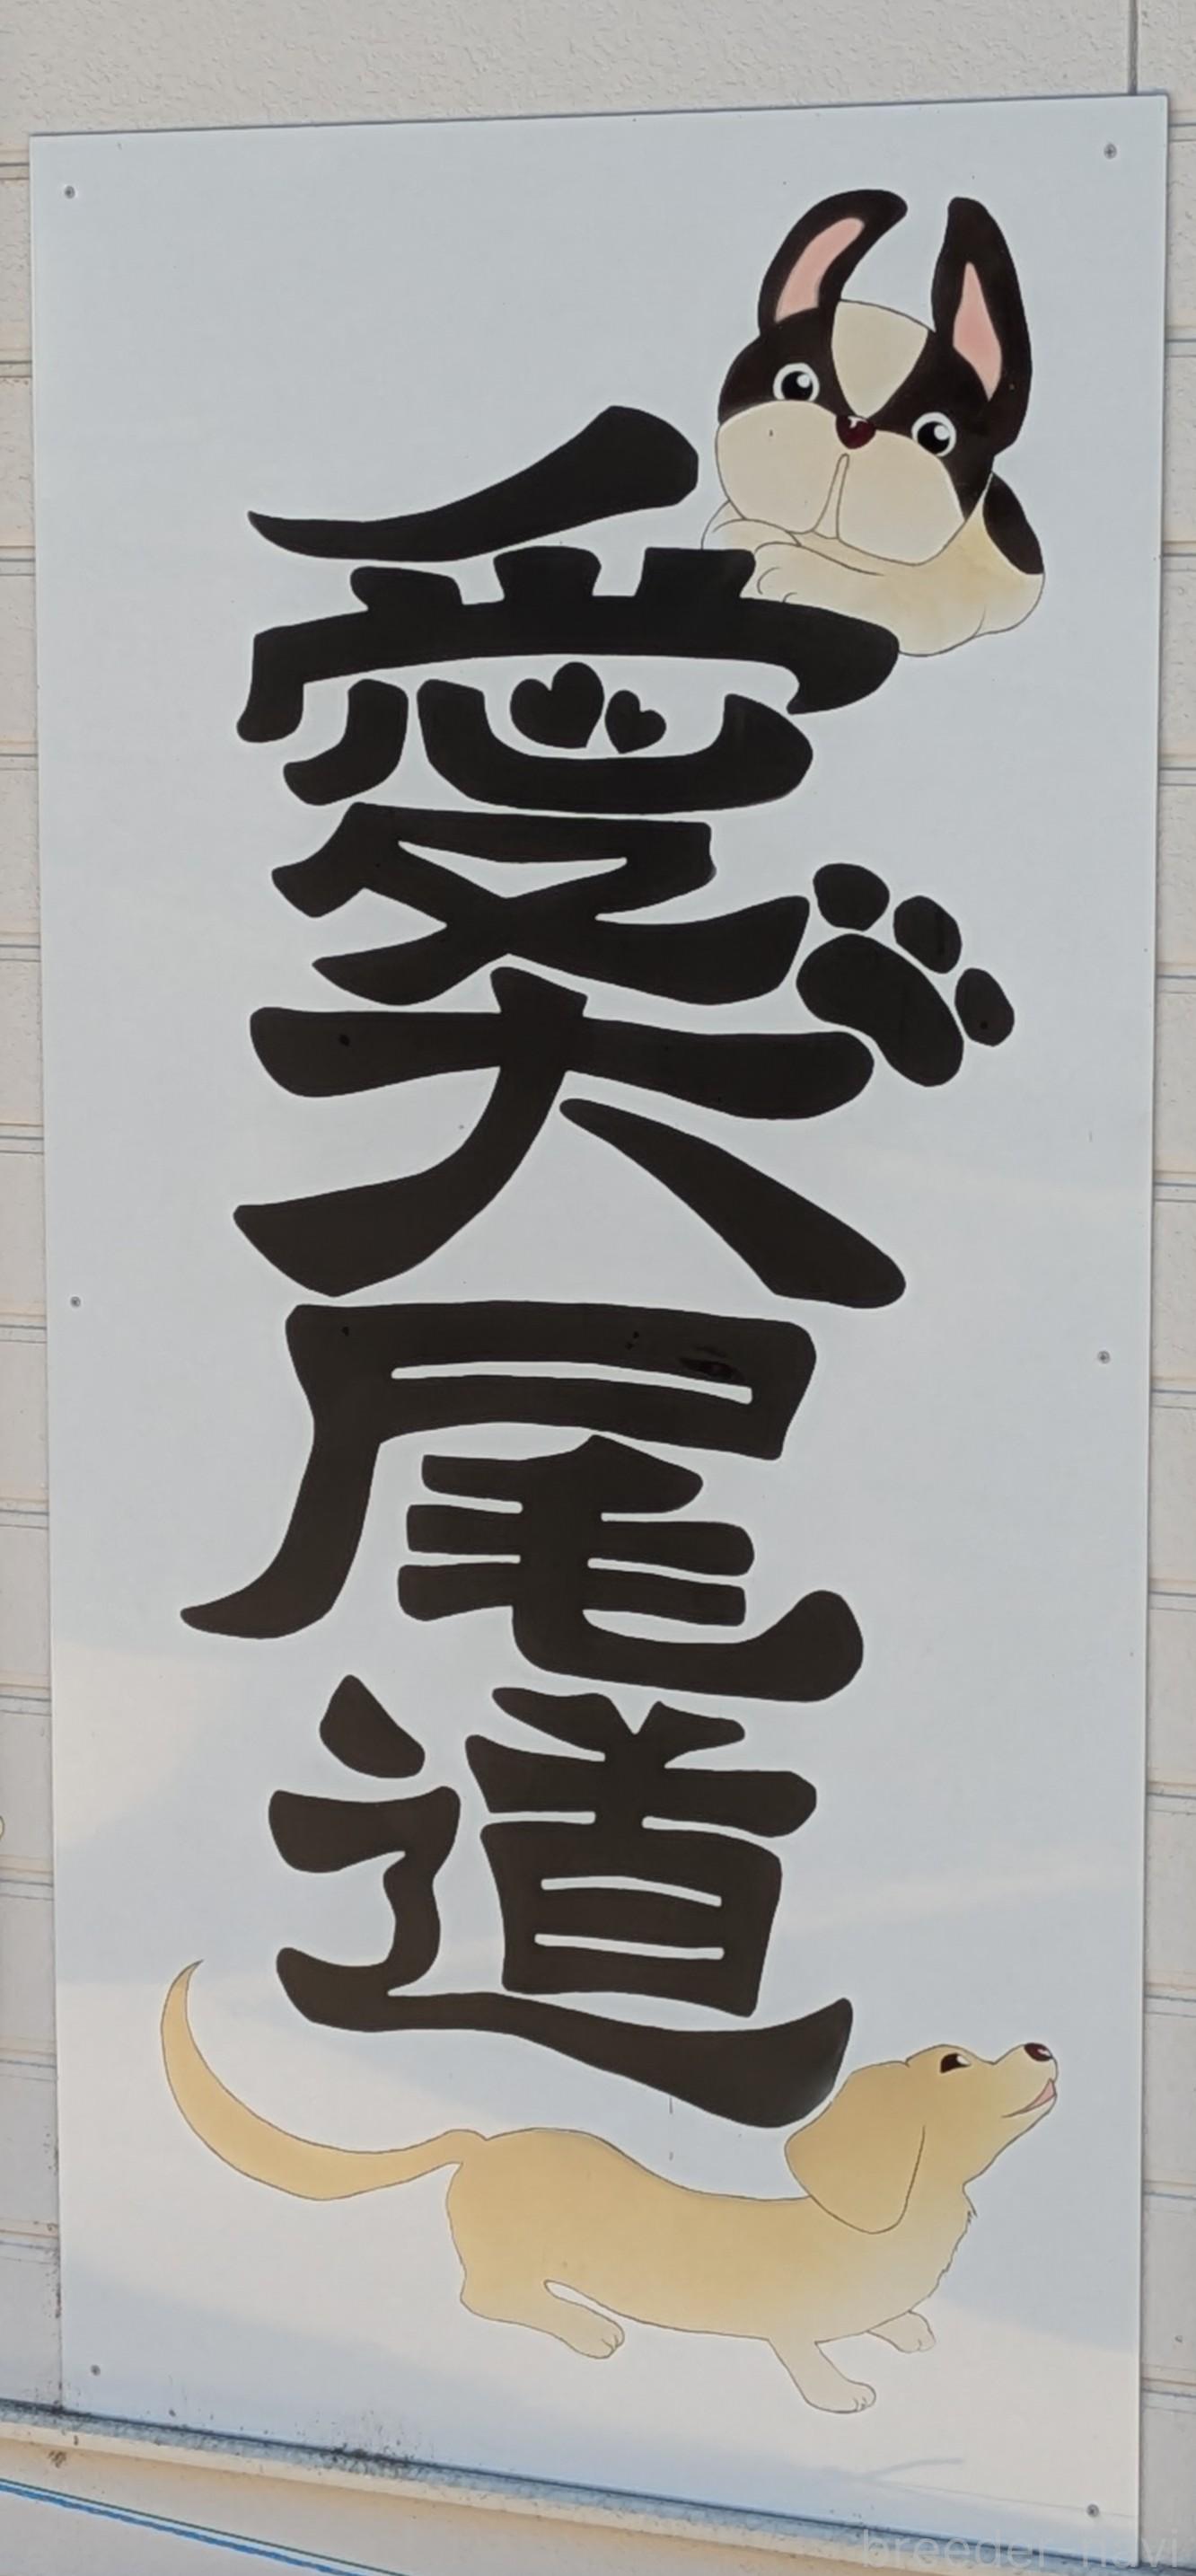 愛犬尾道
breeder-navi